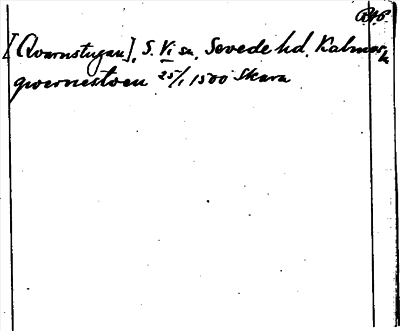 RAP
[Qvarnstugan], S. Vi sn. Sevede hd. Kalmar ln
qwernestwen 25/1 1500 Skara